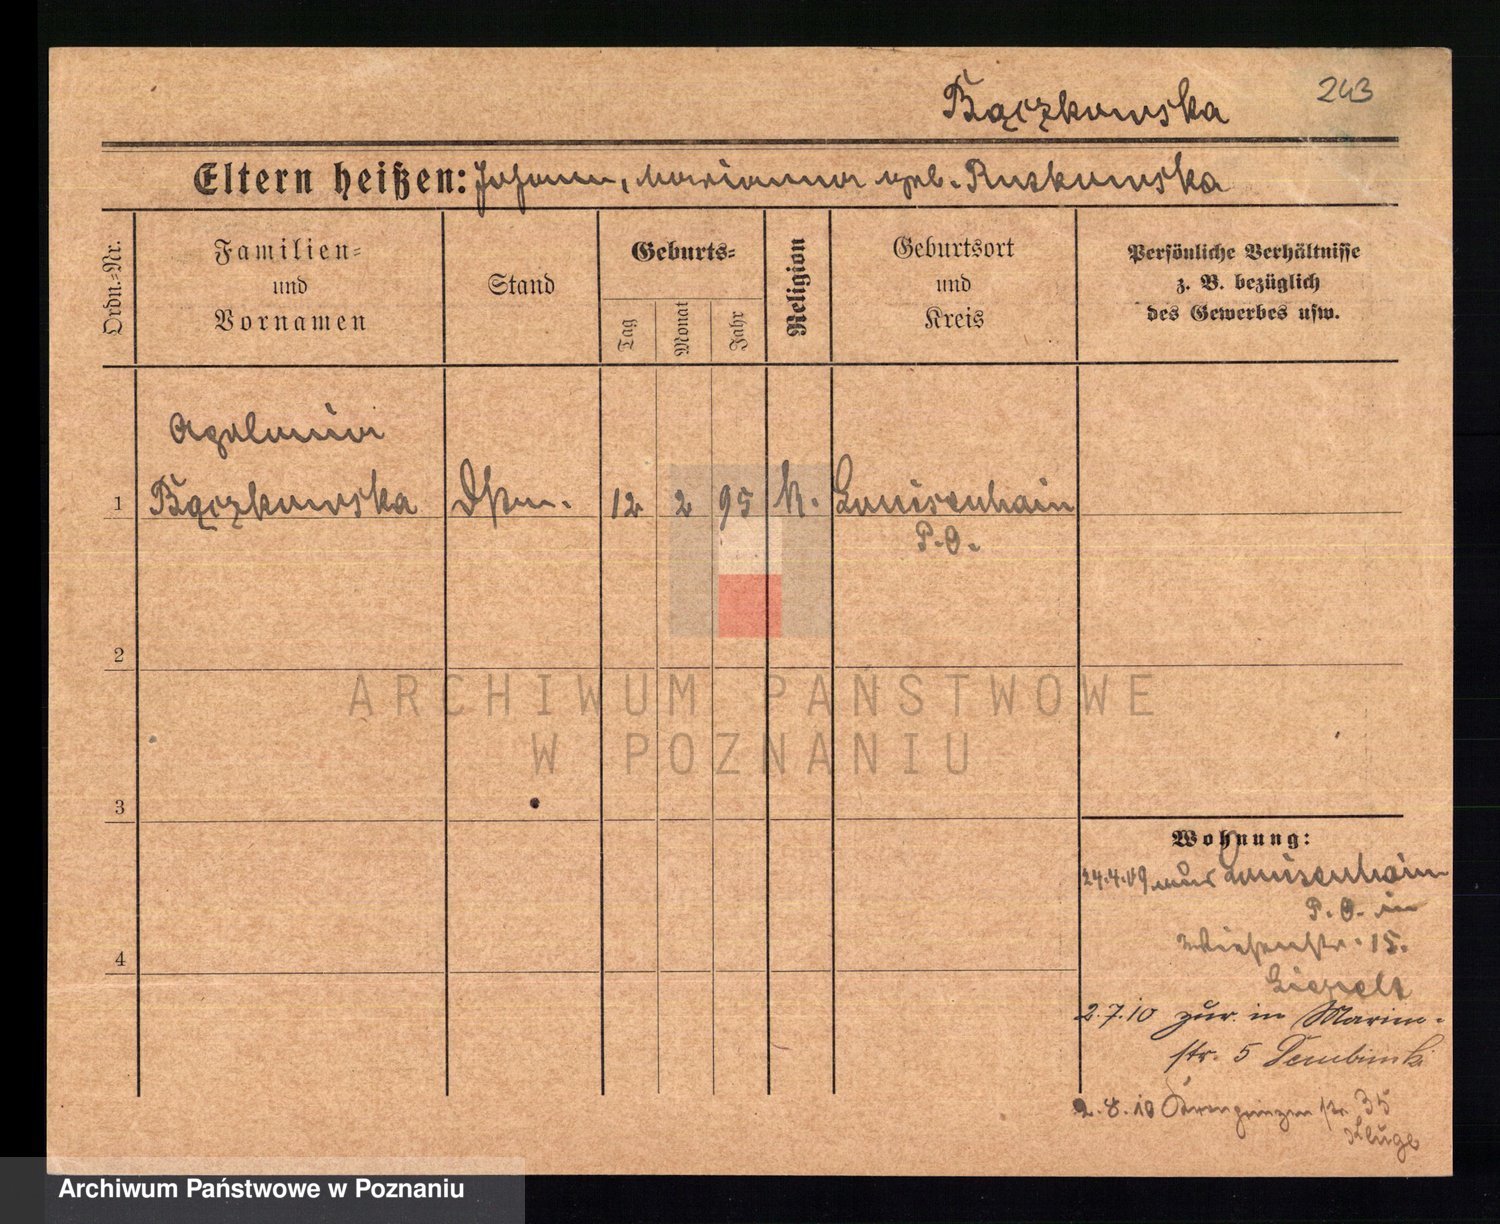 243
Bączkowska
Eltern heißen: Johann, Marianna geb. Ruskowska
Ordn.-Nr.
Familien-
und
Vornamen
Stand
Geburts-
Tag
Monat
Jahr
Religion
Geburtsort
und
Kreis
Persönliche Verhältnisse
z. B. bezüglich
des Gewerbes usw.
Apolonia
1 Bączkowska 12 2 95 k. Louisenhain
P. O.
2
ARCHIWUM PAŃSTWOWE
W POZNANIU
3
4
Wohnung:
24.4.09 aus Louisenhain
P. O. in
Wiesenstr. 15.
2.7.10 zur. in Marien-
str. 5
2.8.10 Kronprinzen str. 35
Kluge
Archiwum Państwowe w Poznaniu